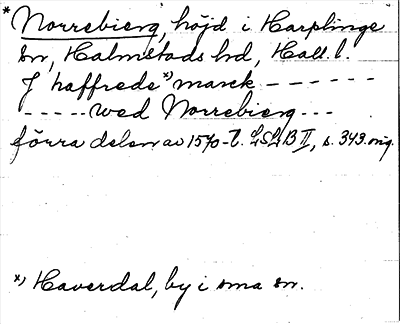 * Norrebierg, höjd i Harplinge
sn, Halmstads hd, Hall. l.
J haffrede *) marck - - - - - -
- - - - - wed Norrebierg - - -
förra delen av 1570-t. LSLB II, s. 343. orig.
*) Haverdal, by i sma sn.